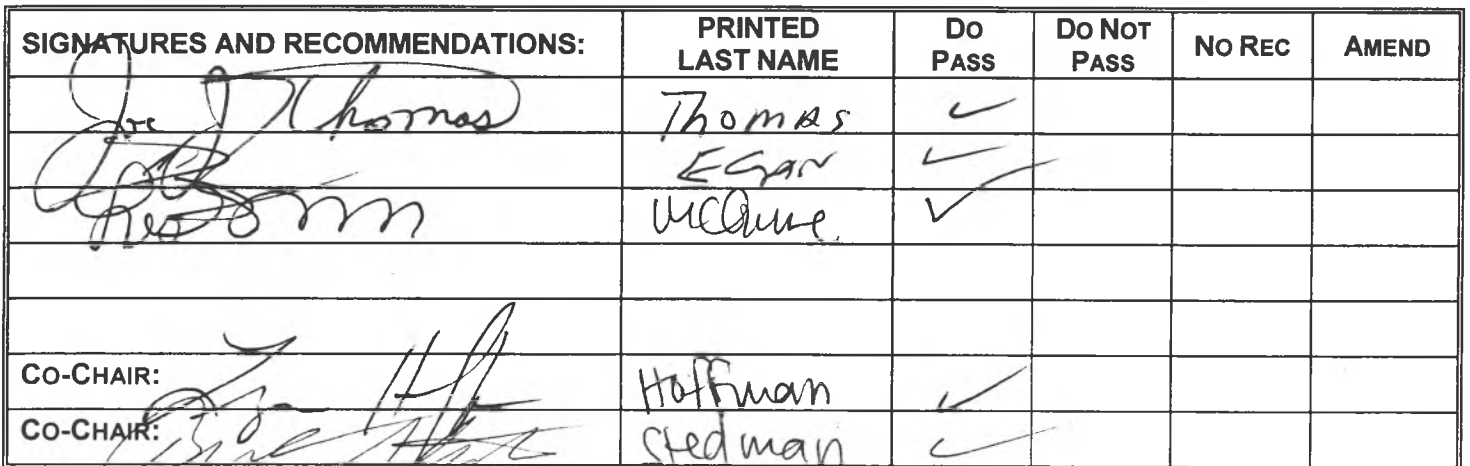 SIGNATURES AND RECOMMENDATIONS: PRINTED LAST NAME DO PASS DO NOT PASS NO REC AMEND
Joe J Thomas Thomas ✓
Egan ✓
McGuire ✓
CO-CHAIR: Hoffman ✓
CO-CHAIR: Stedman ✓